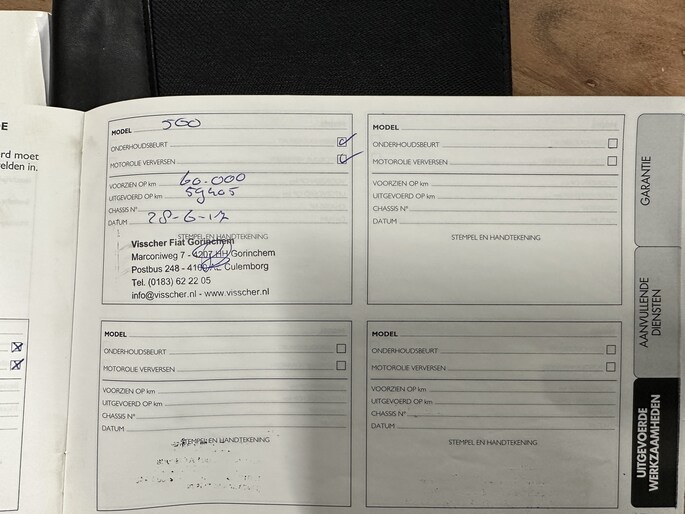 E
rd moet
elden in.
MODEL 500
ONDERHOUDSBEURT
MOTOROLIE VERVERSEN
VOORZIEN OP km 60.000
UITGEVOERD OP km 59405
CHASSIS N°
DATUM 28-6-17
STEMPEL EN HANDTEKENING
Visscher Fiat Gorinchem
Marconiweg 7 - 4207 HH Gorinchem
Postbus 248 - 4100 AE Culemborg
Tel. (0183) 62 22 05
info@visscher.nl - www.visscher.nl
MODEL
ONDERHOUDSBEURT
MOTOROLIE VERVERSEN
VOORZIEN OP km
UITGEVOERD OP km
CHASSIS N°
DATUM
STEMPEL EN HANDTEKENING
MODEL
ONDERHOUDSBEURT
MOTOROLIE VERVERSEN
VOORZIEN OP km
UITGEVOERD OP km
CHASSIS N°
DATUM
STEMPEL EN HANDTEKENING
MODEL
ONDERHOUDSBEURT
MOTOROLIE VERVERSEN
VOORZIEN OP km
UITGEVOERD OP km
CHASSIS N°
DATUM
STEMPEL EN HANDTEKENING
GARANTIE
AANVULLENDE
DIENSTEN
UITGEVOERDE
WERKZAAMHEDEN